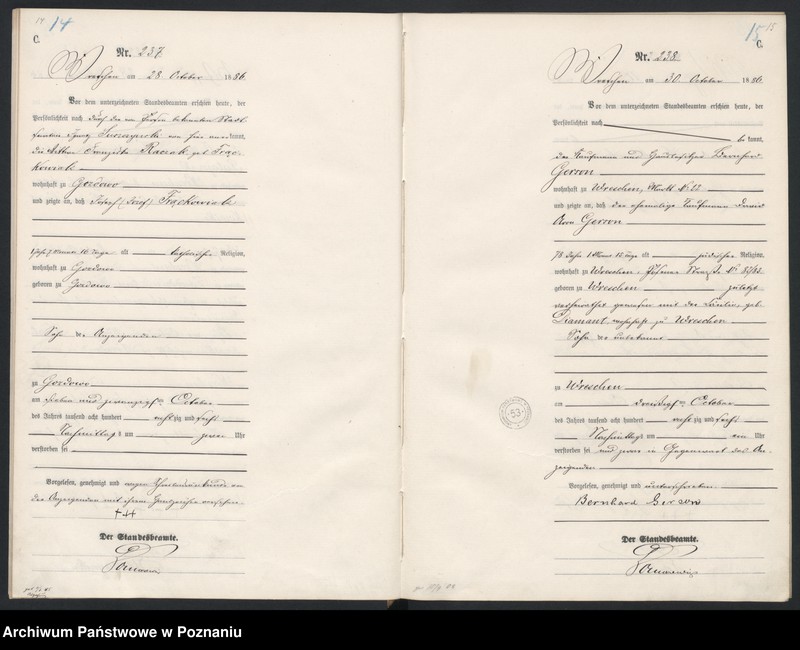 14 14
C.
Nr. 237
Wreschen am 28 October 1886
Vor dem unterzeichneten Standesbeamten erschien heute, der
Persönlichkeit nach durch den von Person bekannten Stadt
von hier anerkannt,
die Wittwe Franziska geb. Frąc-
kowiak
wohnhaft zu Gozdowo
und zeigte an, daß Józef (Josef) Frąckowiak
alt katholischer Religion,
wohnhaft zu Gozdowo
geboren zu Gozdowo
Sohn der Anzeigenden
zu Gozdowo
am sieben und zwanzigsten October
des Jahres tausend acht hundert achtzig und sechs
Nachmittags um zwei Uhr
verstorben sei
Vorgelesen, genehmigt und wegen Schreibensunkunde von
der Anzeigenden mit ihrem Handzeichen versehen
+++
Der Standesbeamte.
15 15
C.
Nr. 238
Wreschen am 30 October 1886
Vor dem unterzeichneten Standesbeamten erschien heute, der
Persönlichkeit nach
bekannt,
der Kaufmann und Hausbesitzer Bernhard
Gerson
wohnhaft zu Wreschen, Markt No
und zeigte an, daß der ehemalige Kaufmann David
Aron Gerson
78 Jahre 1 Monat 12 Tage alt jüdischer Religion,
wohnhaft zu Wreschen, Posener Straße No
geboren zu Wreschen zuletzt
verheirathet gewesen mit der Cäcilie geb.
Diamant, wohnhaft zu Wreschen
Sohn der unbekannt
zu Wreschen
am dreißigsten October
des Jahres tausend acht hundert achtzig und sechs
Nachmittags um ein Uhr
verstorben sei und zwar in Gegenwart des An-
zeigenden
Vorgelesen, genehmigt und unterschrieben
Bernhard Gerson
Der Standesbeamte.
53
Archiwum Państwowe w Poznaniu